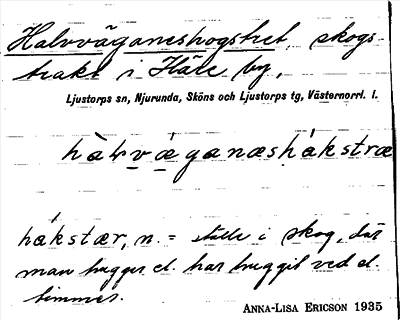 Halvväganeshogstret, skogs-
trakt i Häre by,
Ljustorps sn, Njurunda, Sköns och Ljustorps tg, Västernorrl. l.
hàlvæganæshåkstræ
håkstær, n. = ställe i skog, där
man hugger el. har huggit ved el.
timmer.
ANNA-LISA ERICSON 1935